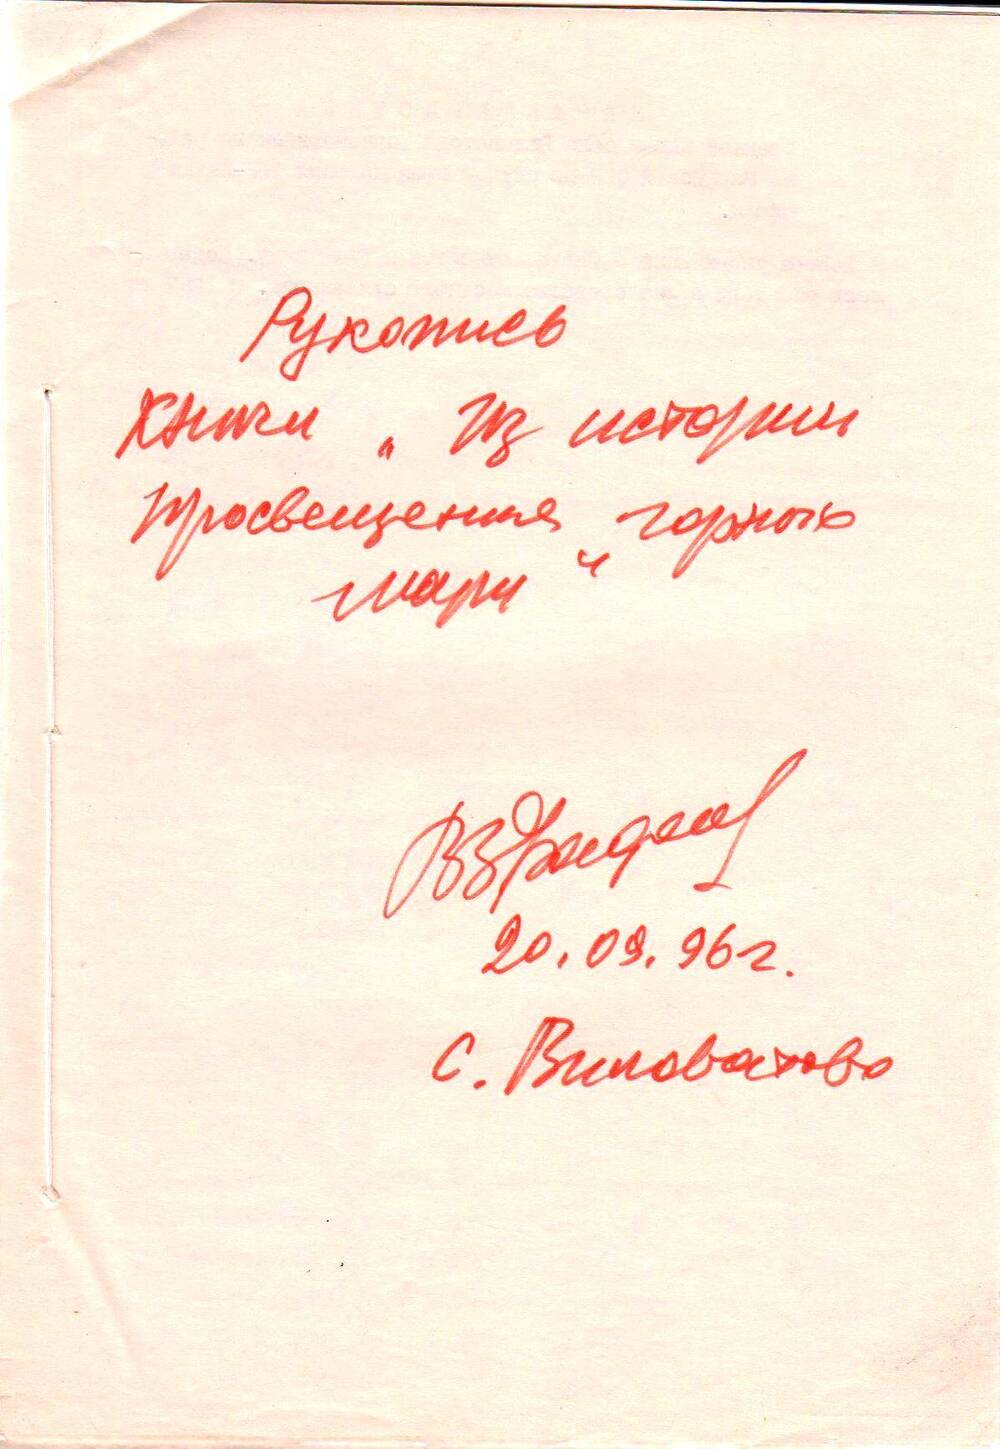 Рукопись
книги „Из истории
просвещения горных
мари“
20.09.96г.
с. Виловатово